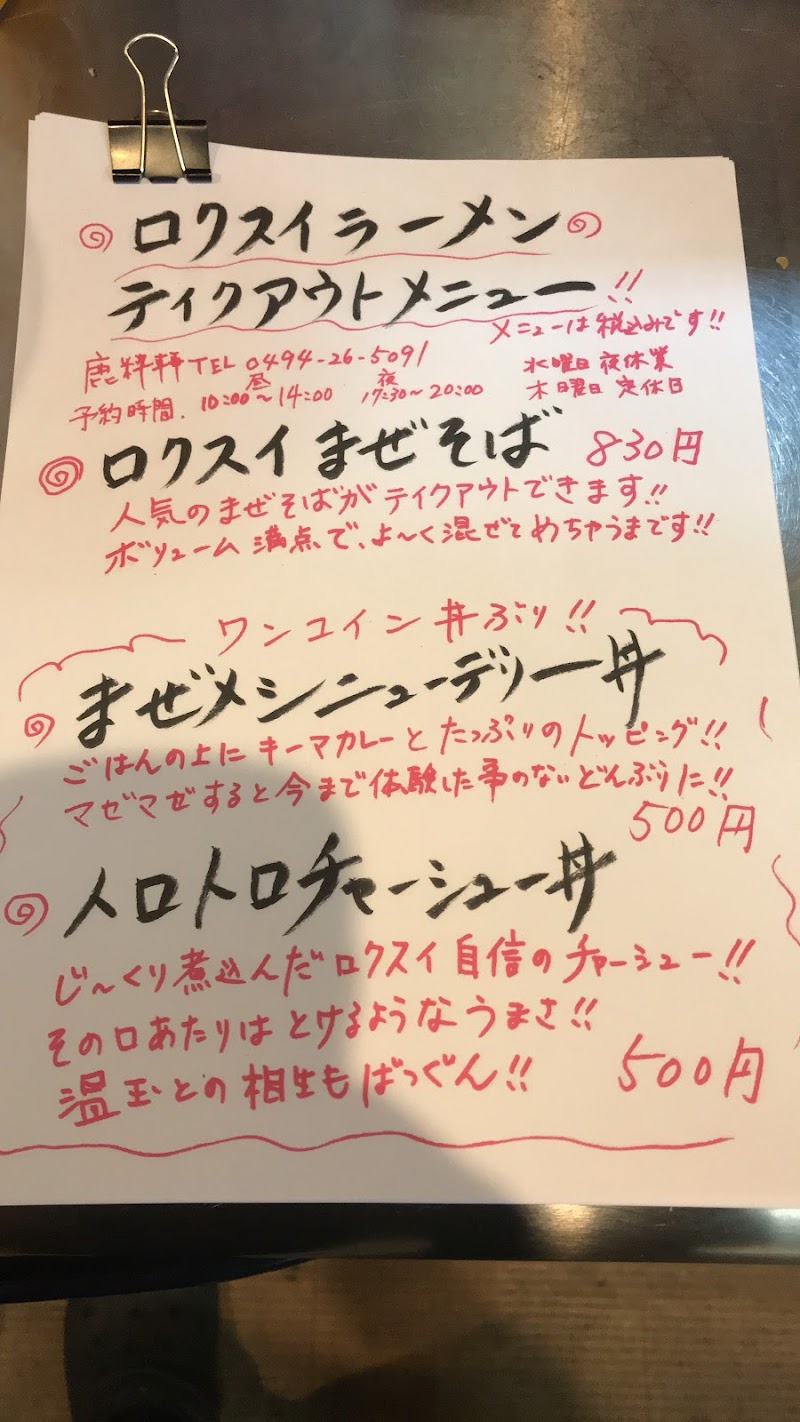 ロクスイラーメン
テイクアウトメニュー!!
メニューは税込みです!!
鹿粋軒 TEL 0494-26-5091
水曜日 夜休業
予約時間. 昼 10:00～14:00 夜 17:30～20:00
木曜日 定休日
ロクスイまぜそば 830円
人気のまぜそばがテイクアウトできます!!
ボリューム満点で、よ～く混ぜてめちゃうまです!!
ワンコイン丼ぶり!!
まぜメシニューデリー丼
ごはんの上にキーマカレーとたっぷりのトッピング!!
マゼマゼすると今まで体験した事のないどんぶりに!!
500円
トロトロチャーシュー丼
じ～くり煮込んだロクスイ自信のチャーシュー!!
その口あたりはとけるようなうまさ!!
温玉との相生もばっぐん!! 500円